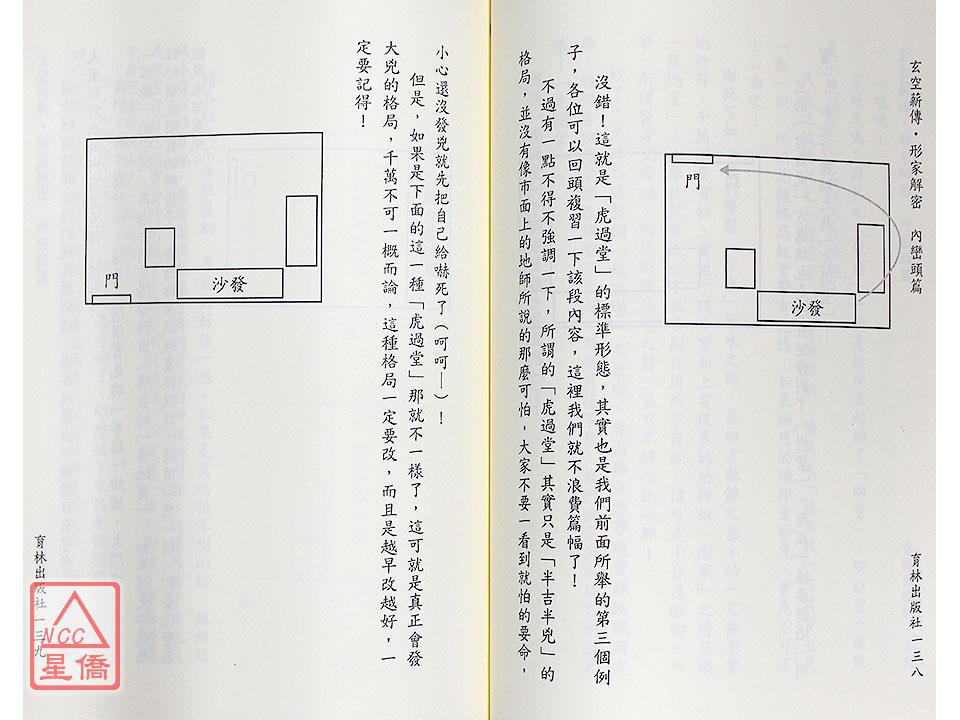 玄空薪傳・形家解密　內巒頭篇
門
沙發
沒錯！這就是「虎過堂」的標準形態，其實也是我們前面所舉的第三個例
子，各位可以回頭複習一下該段內容，這裡我們就不浪費篇幅了！
不過有一點不得不強調一下，所謂的「虎過堂」其實只是「半吉半兇」的
格局，並沒有像市面上的地師所說的那麼可怕，大家不要一看到就怕的要命，
育林出版社 一三八
小心還沒發兇就先把自己給嚇死了（呵呵—）！
但是，如果是下面的這一種「虎過堂」那就不一樣了，這可就是真正會發
大兇的格局，千萬不可一概而論，這種格局一定要改，而且是越早改越好，一
定要記得！
門
沙發
育林出版社 一三九
NCC
星僑